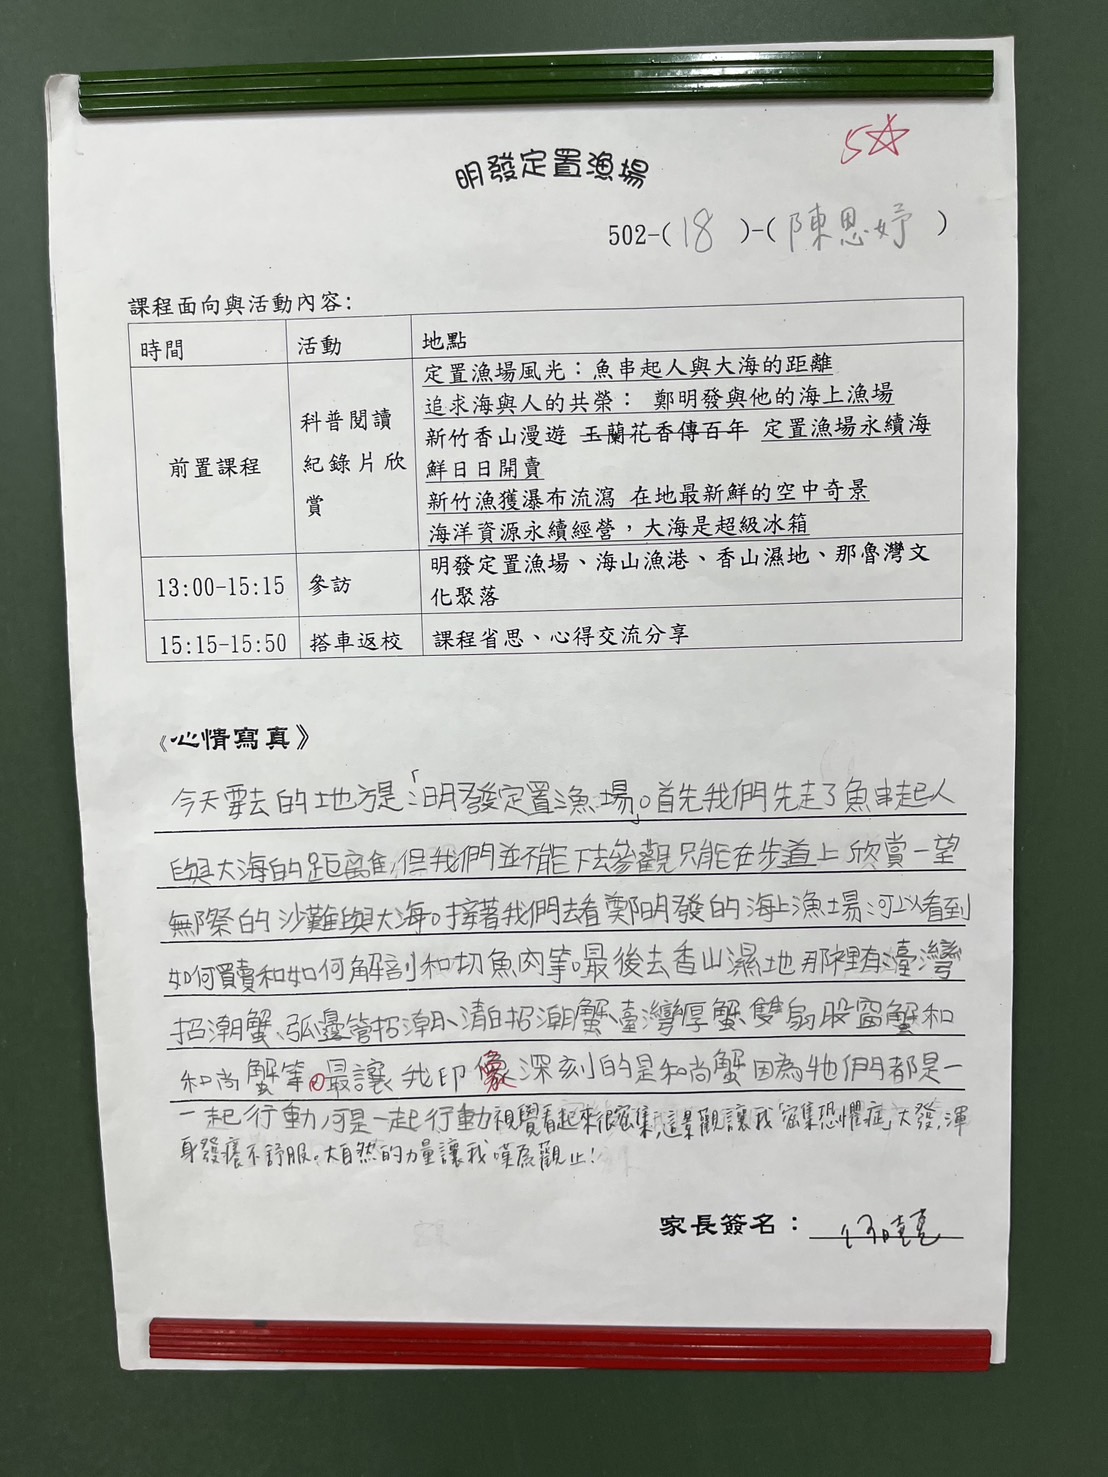 5☆
明發定置漁場
502-(18)-(陳思妤)
課程面向與活動內容:
時間 活動 地點
前置課程 科普閱讀紀錄片欣賞 定置漁場風光：魚串起人與大海的距離
追求海與人的共榮： 鄭明發與他的海上漁場
新竹香山漫遊 玉蘭花香傳百年 定置漁場永續海
鮮日日開賣
新竹漁獲瀑布流瀉 在地最新鮮的空中奇景
海洋資源永續經營，大海是超級冰箱
13:00-15:15 參訪 明發定置漁場、海山漁港、香山濕地、那魯灣文
化聚落
15:15-15:50 搭車返校 課程省思、心得交流分享
《心情寫真》
今天要去的地方是:「明發定置漁場」。首先我們先走了魚串起人
與大海的距離,但我們並不能下去參觀只能在步道上欣賞一望
無際的沙難與大海。接著我們去看鄭明發的海上漁場,可以看到
如何買賣和如何解剖和切魚肉等。最後去香山濕地那裡有臺灣
招潮蟹、弧邊管招潮、清白招潮蟹、臺灣厚蟹、雙扇股窗蟹和
和尚蟹等。最讓我印象深刻的是和尚蟹因為牠們都是一
一起行動,可是一起行動視覺看起來很密集,這景觀讓我「密集恐懼症」大發,渾
身發癢不舒服。大自然的力量讓我嘆為觀止!
家長簽名：